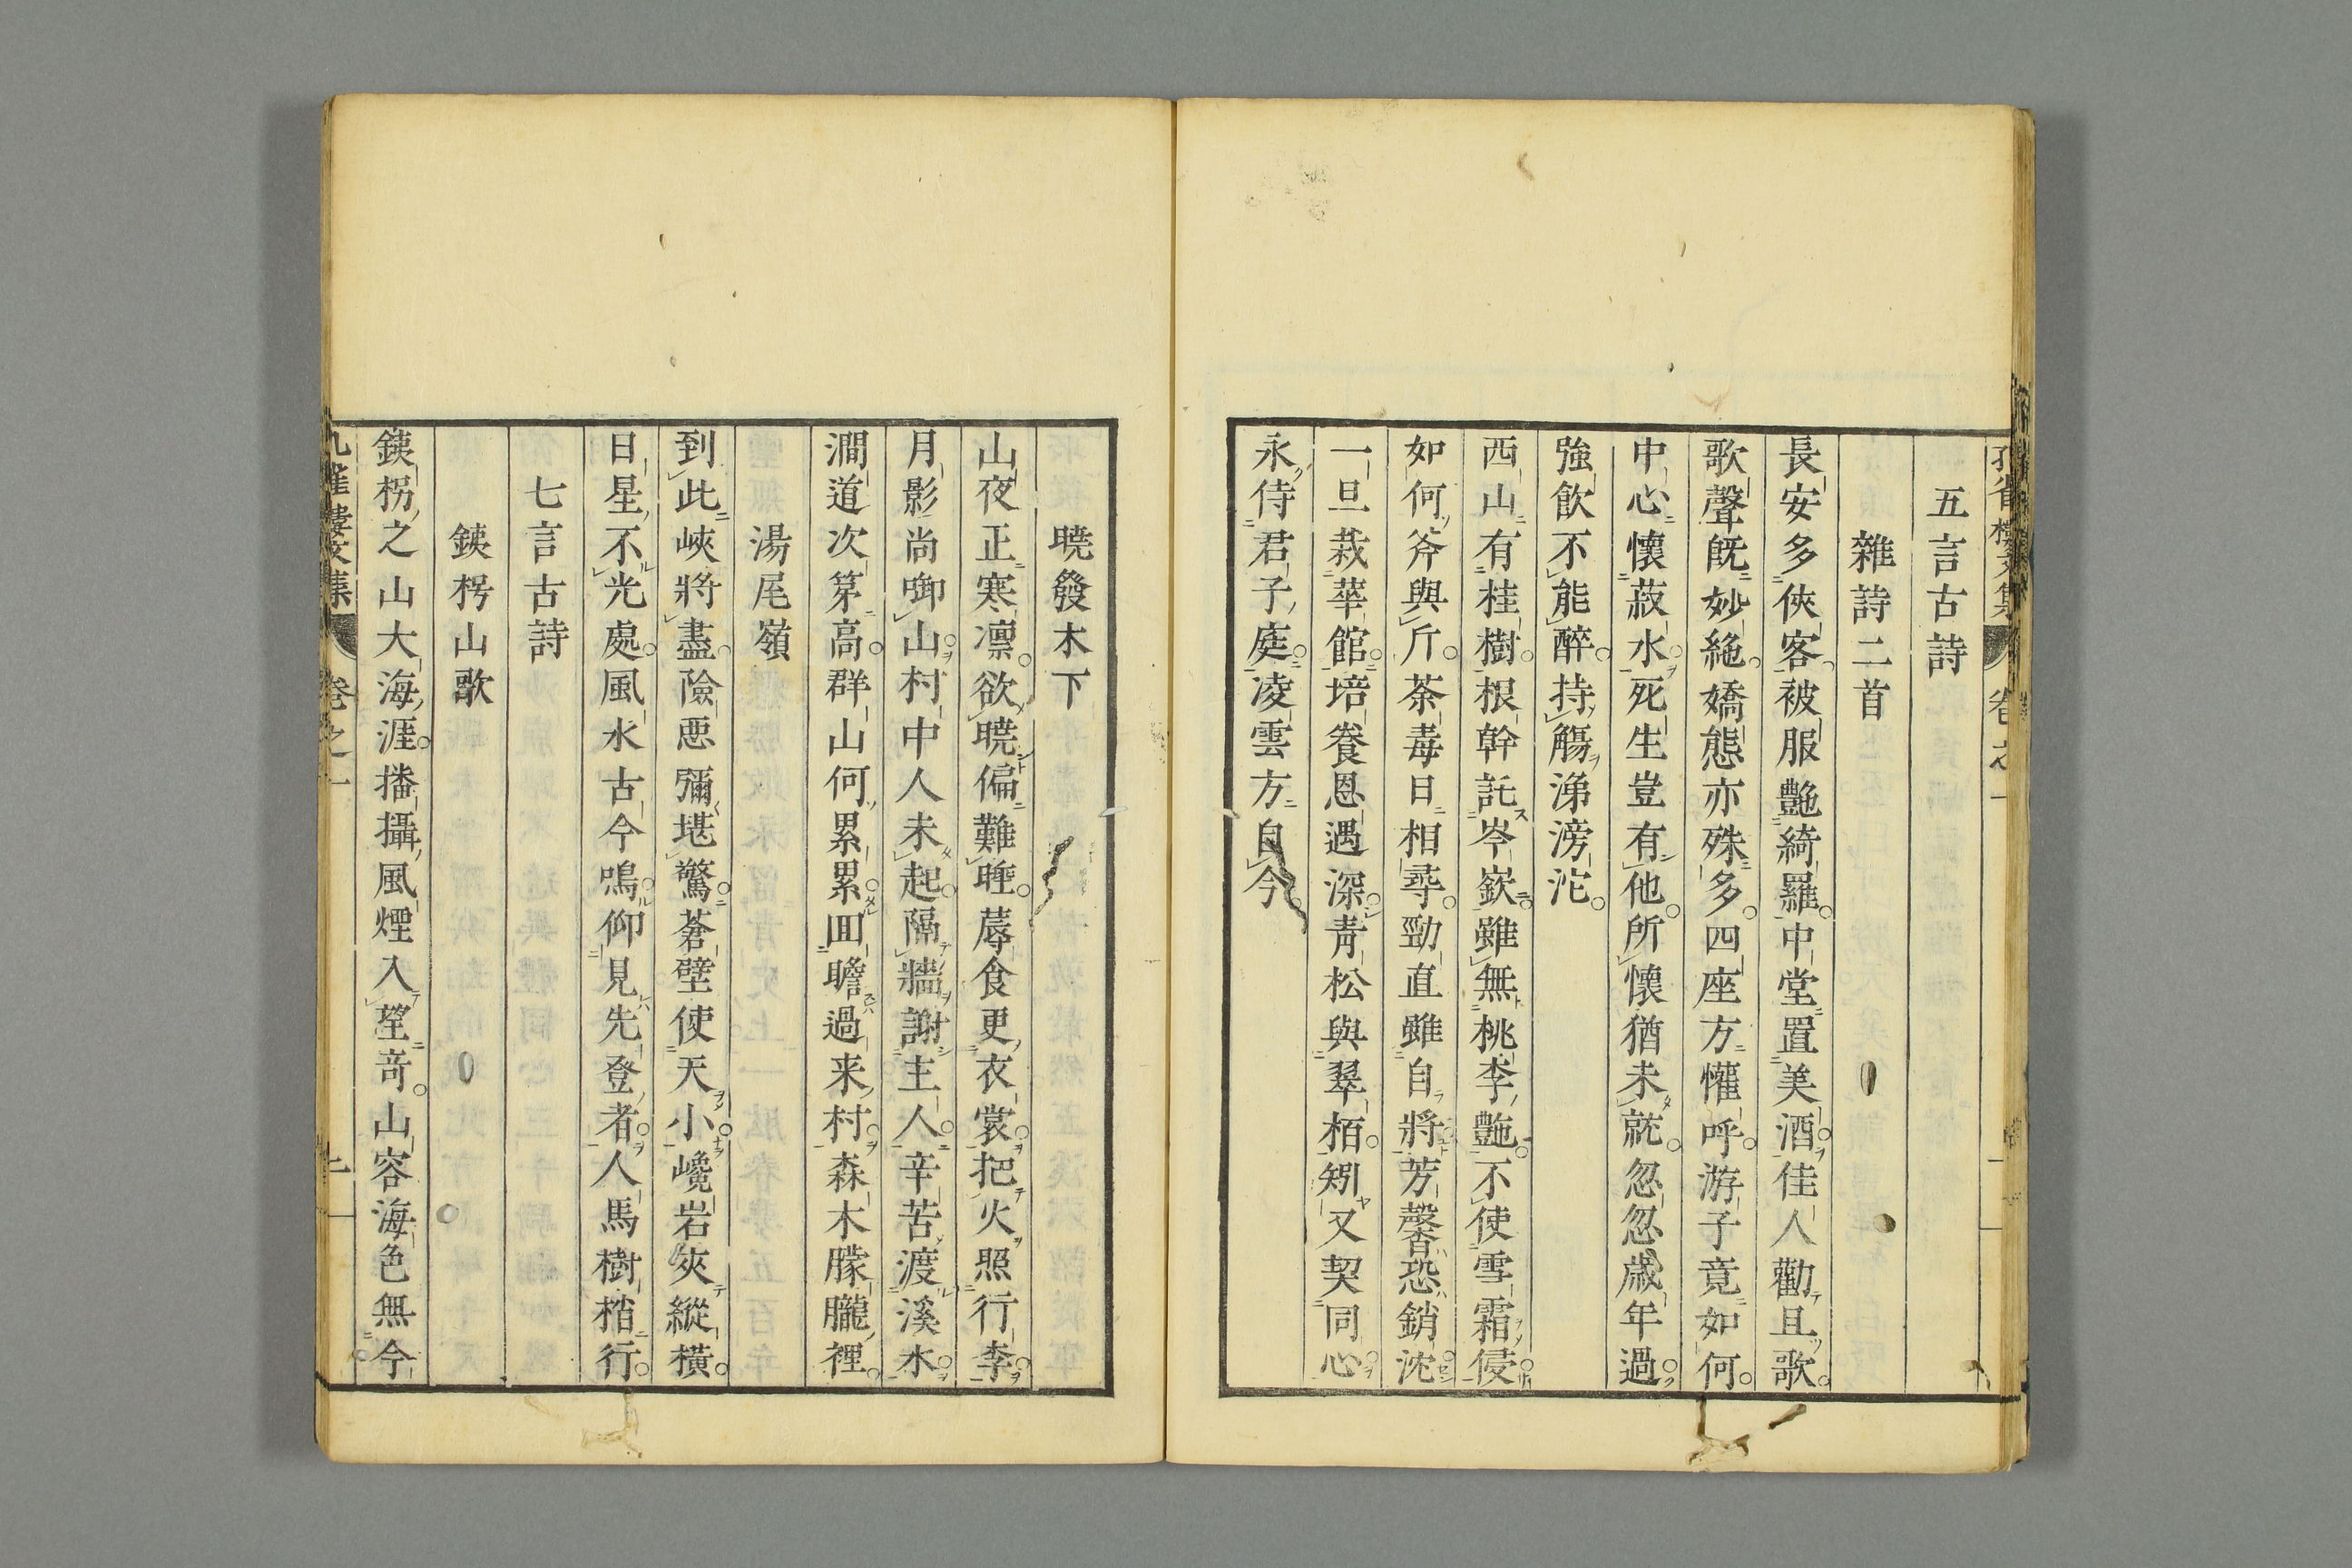 五言古詩
雜詩二首
長安多俠客被服艶綺羅中堂置美酒佳人勸且歌
歌聲既妙絶嬌態亦殊多四座方懽呼游子竟如何
中心懷菽水死生豈有他所懷猶未就忽忽歳年過
強飲不能醉持觴涕滂沱
西山有桂樹根幹託岑嶔雖無桃李艶不使雪霜侵
如何斧與斤荼毒日相尋勁直雖自將芳馨恐銷沈
一旦栽華館培養恩遇深青松與翠栢矧又契同心
永侍君子庭凌雲方自今
暁發木下
山夜正寒凛欲暁偏難睡蓐食更衣裳把火照行李
月影尚啣山村中人未起隔牆謝主人辛苦渡溪水
澗道次第高群山何累累回瞻過来村森木朦朧裡
湯尾嶺
到此峽將盡險悪彌堪驚蒼壁使天小巉岩夾縱横
日星不光處風水古今鳴仰見先登者人馬樹梢行
七言古詩
鋏楞山歌
鋏柺之山大海涯播攝風煙入望竒山容海色無今
孔雀樓文集 卷之一